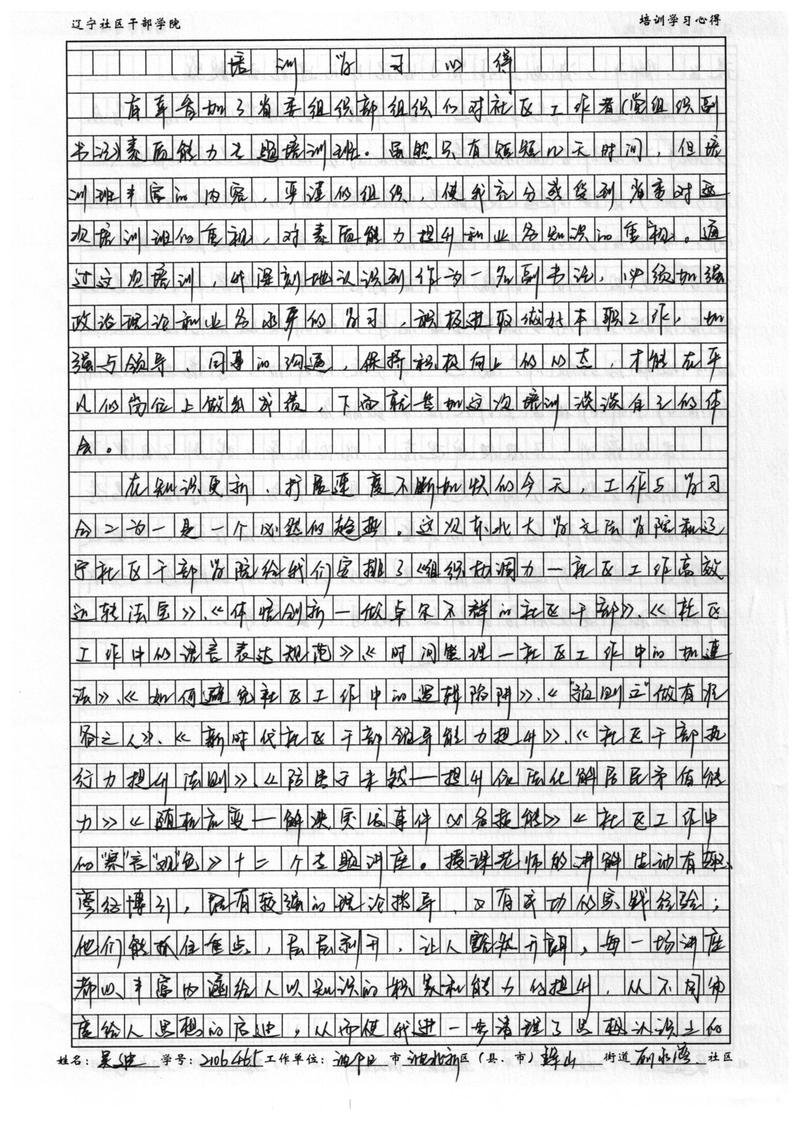 辽宁社区干部学院 培训学习心得
培训学习心得
有幸参加了省委组织部组织的对社区工作者(党组织副
书记)素质能力专题培训班。虽然只有短短的天时间,但培
训班丰富的内容,严谨的组织,使我充分感受到省委对这
次培训班的重视,对素质能力提升和业务知识的重视。通
过这次培训,我深刻地认识到作为一名副书记,必须加强
政治理论和业务水平的学习,积极进取做好本职工作,加
强与领导、同事的沟通,保持积极向上的心态,才能在平
凡的岗位上做出成绩,下面就参加这次培训谈谈自己的体
会。
在知识更新、扩展速度不断加快的今天,工作与学习
合二为一是一个必然的趋势。这次东北大学文法学院和辽
宁社区干部学院给我们安排了《组织协调力—社区工作高效
运转法宝》、《体悟创新—做卓尔不群的社区干部》、《社区
工作中的语言表达规范》、《时间管理—社区工作中的加速
法》、《如何避免社区工作中的逻辑陷阱》、《"说则立"做有准
备之人》、《新时代社区干部领导能力提升》、《社区干部执
行力提升法则》、《防患于未然—提升依法化解居民矛盾能
力》《随机应变—解决突发事件必备技能》《社区工作中
的"察言""观色"》十二个专题讲座。授课老师的讲解生动有趣、
旁征博引,既有较强的理论指导,又有成功的实践经验;
他们能抓住重点,层层剥开,让人豁然开朗,每一场讲座
都以丰富内涵给人以知识的积累和能力的提升,从不同角
度给人思想的启迪,从而使我进一步清理了思想认识上的
姓名: 吴 学号:2106465 工作单位: 市 区(县、市) 山 街道 社区